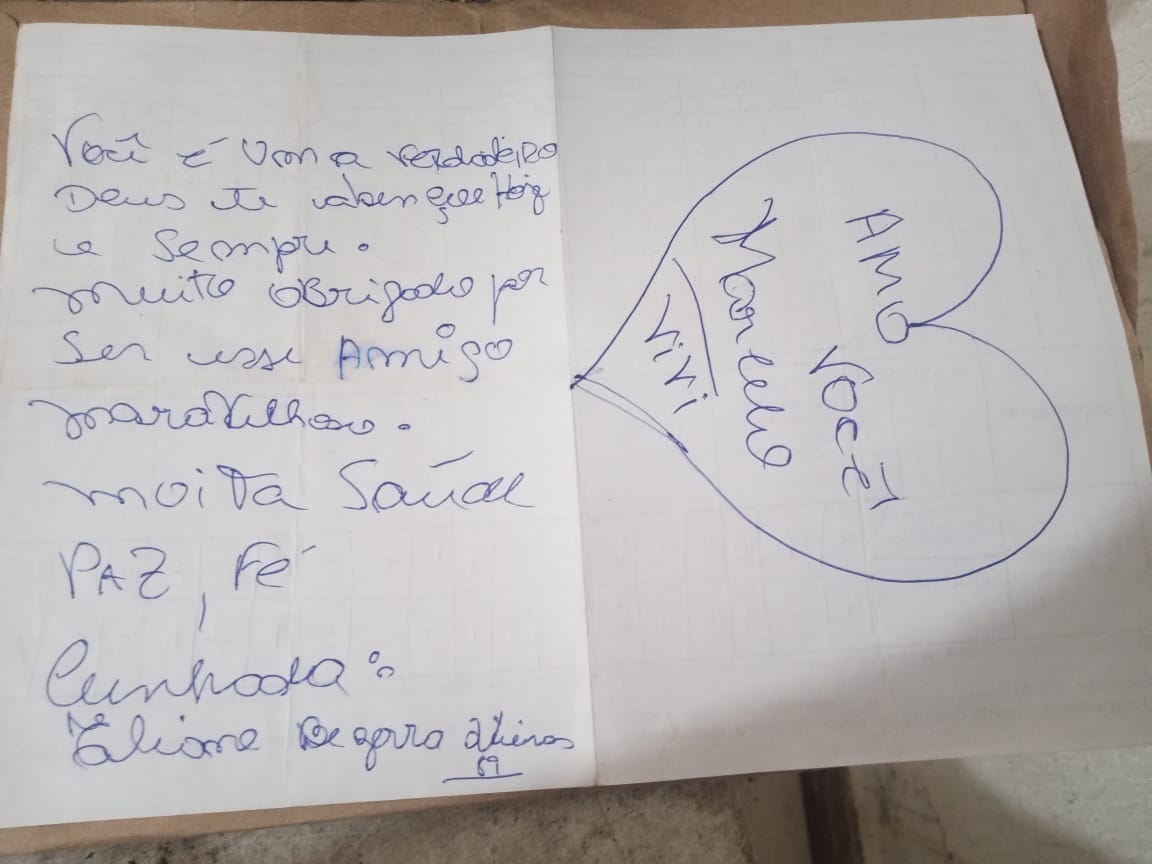 Você é uma verdadeiro
Deus te abençoe Hoje
e sempre.
muito obrigado por
Ser esse Amigo
maravilhoso.
moita Saúde
PAZ, FÉ
Cunhada:
Eliane Bezerra
89
AMO VOCÊ
Marcelo
ViVi